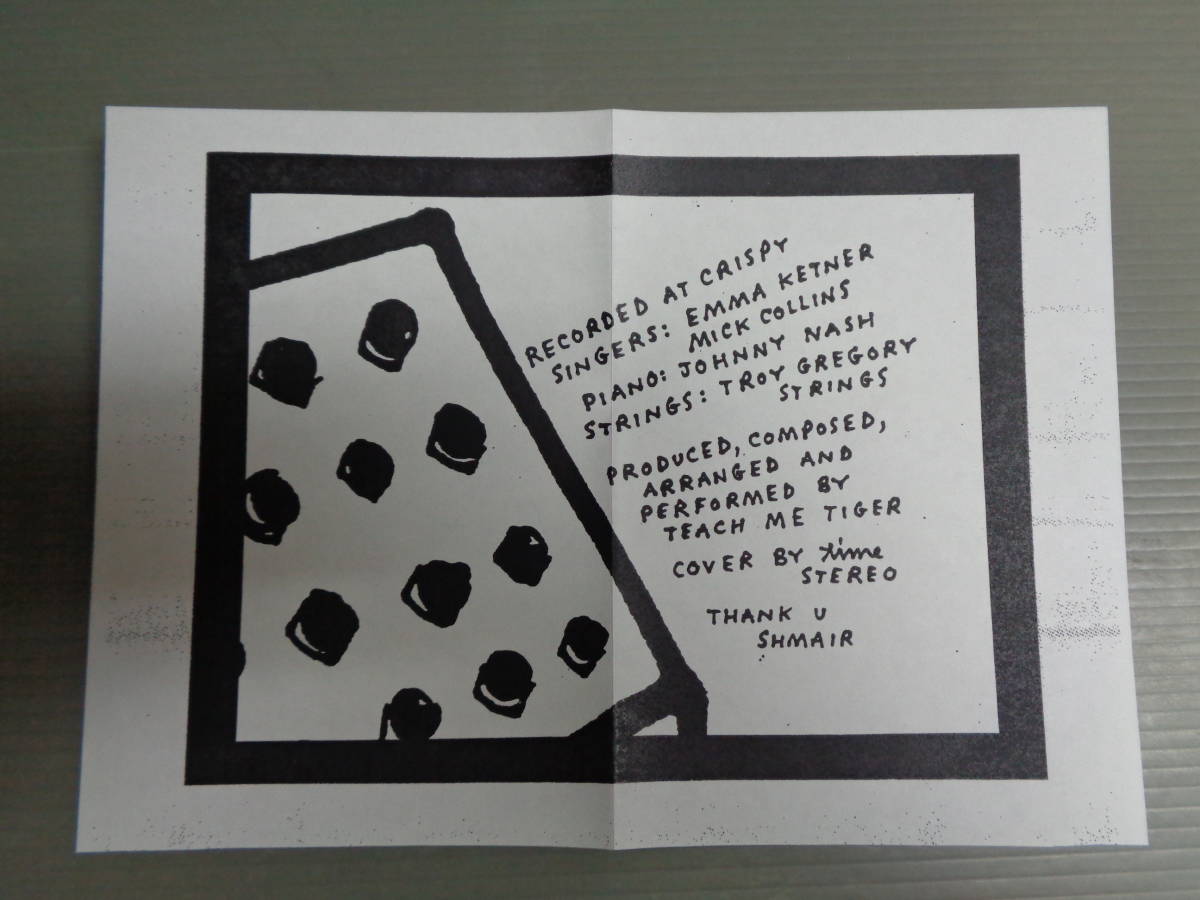 RECORDED AT CRISPY
SINGERS: EMMA KETNER
MICK COLLINS
PIANO: JOHNNY NASH
STRINGS: TROY GREGORY
STRINGS
PRODUCED, COMPOSED,
ARRANGED AND
PERFORMED BY
TEACH ME TIGER
COVER BY time
STEREO
THANK U
SHMAIR